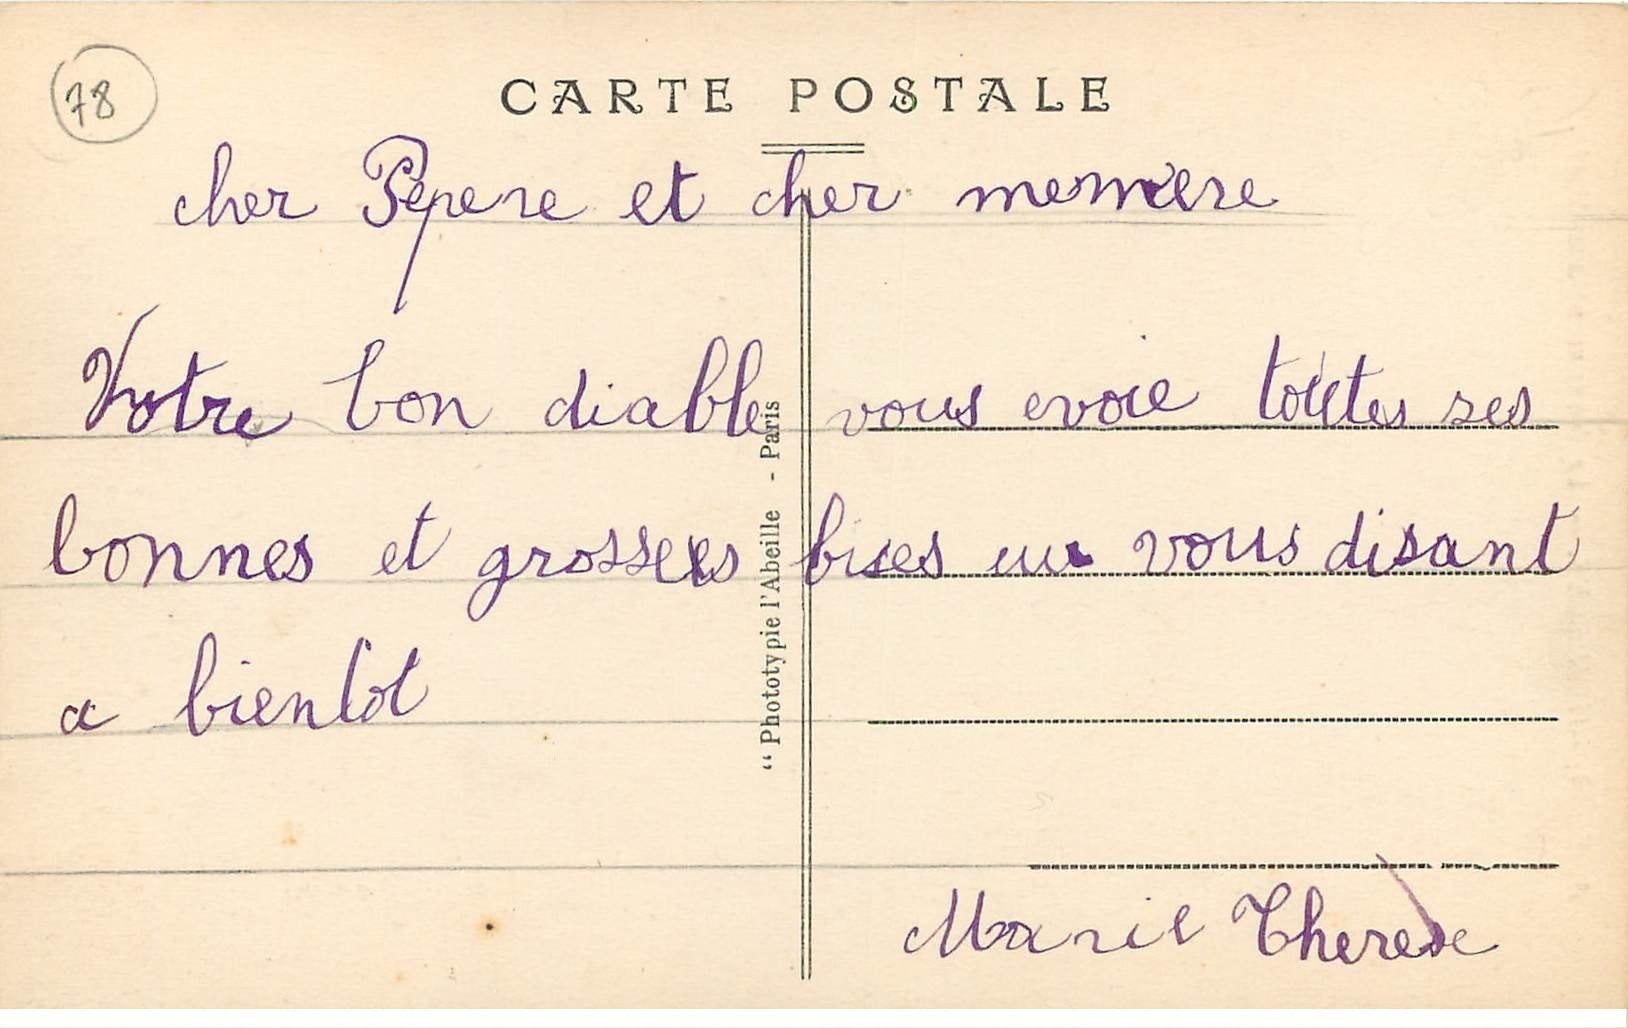 78
CARTE POSTALE
cher Pepere et cher memere
Votre bon diable vous evoie toutes ses
bonnes et grosses bises en vous disant
a bientot
Marie Therese
“ Phototypie l'Abeille - Paris